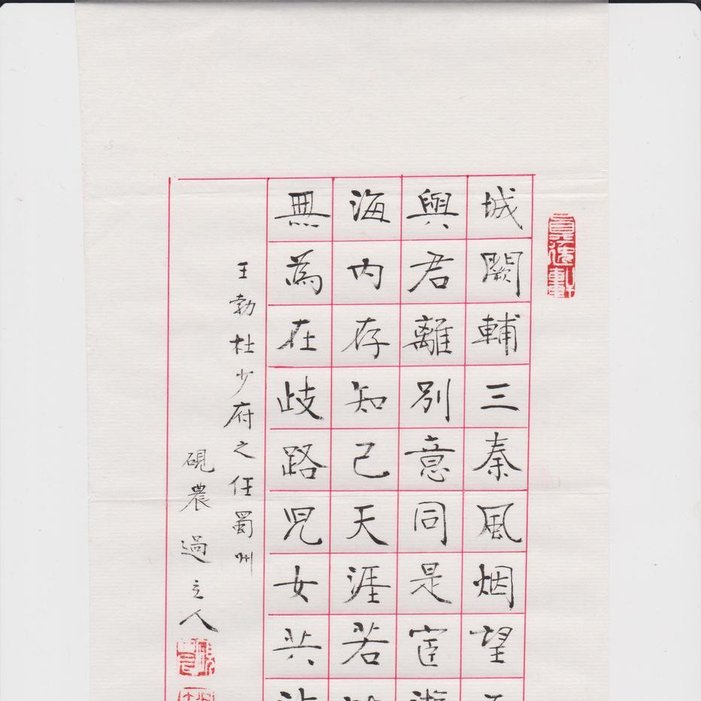 城闕輔三秦風烟望
與君離別意同是宦
海内存知己天涯若
無為在歧路児女共
王勃杜少府之任蜀州
硯農過立人